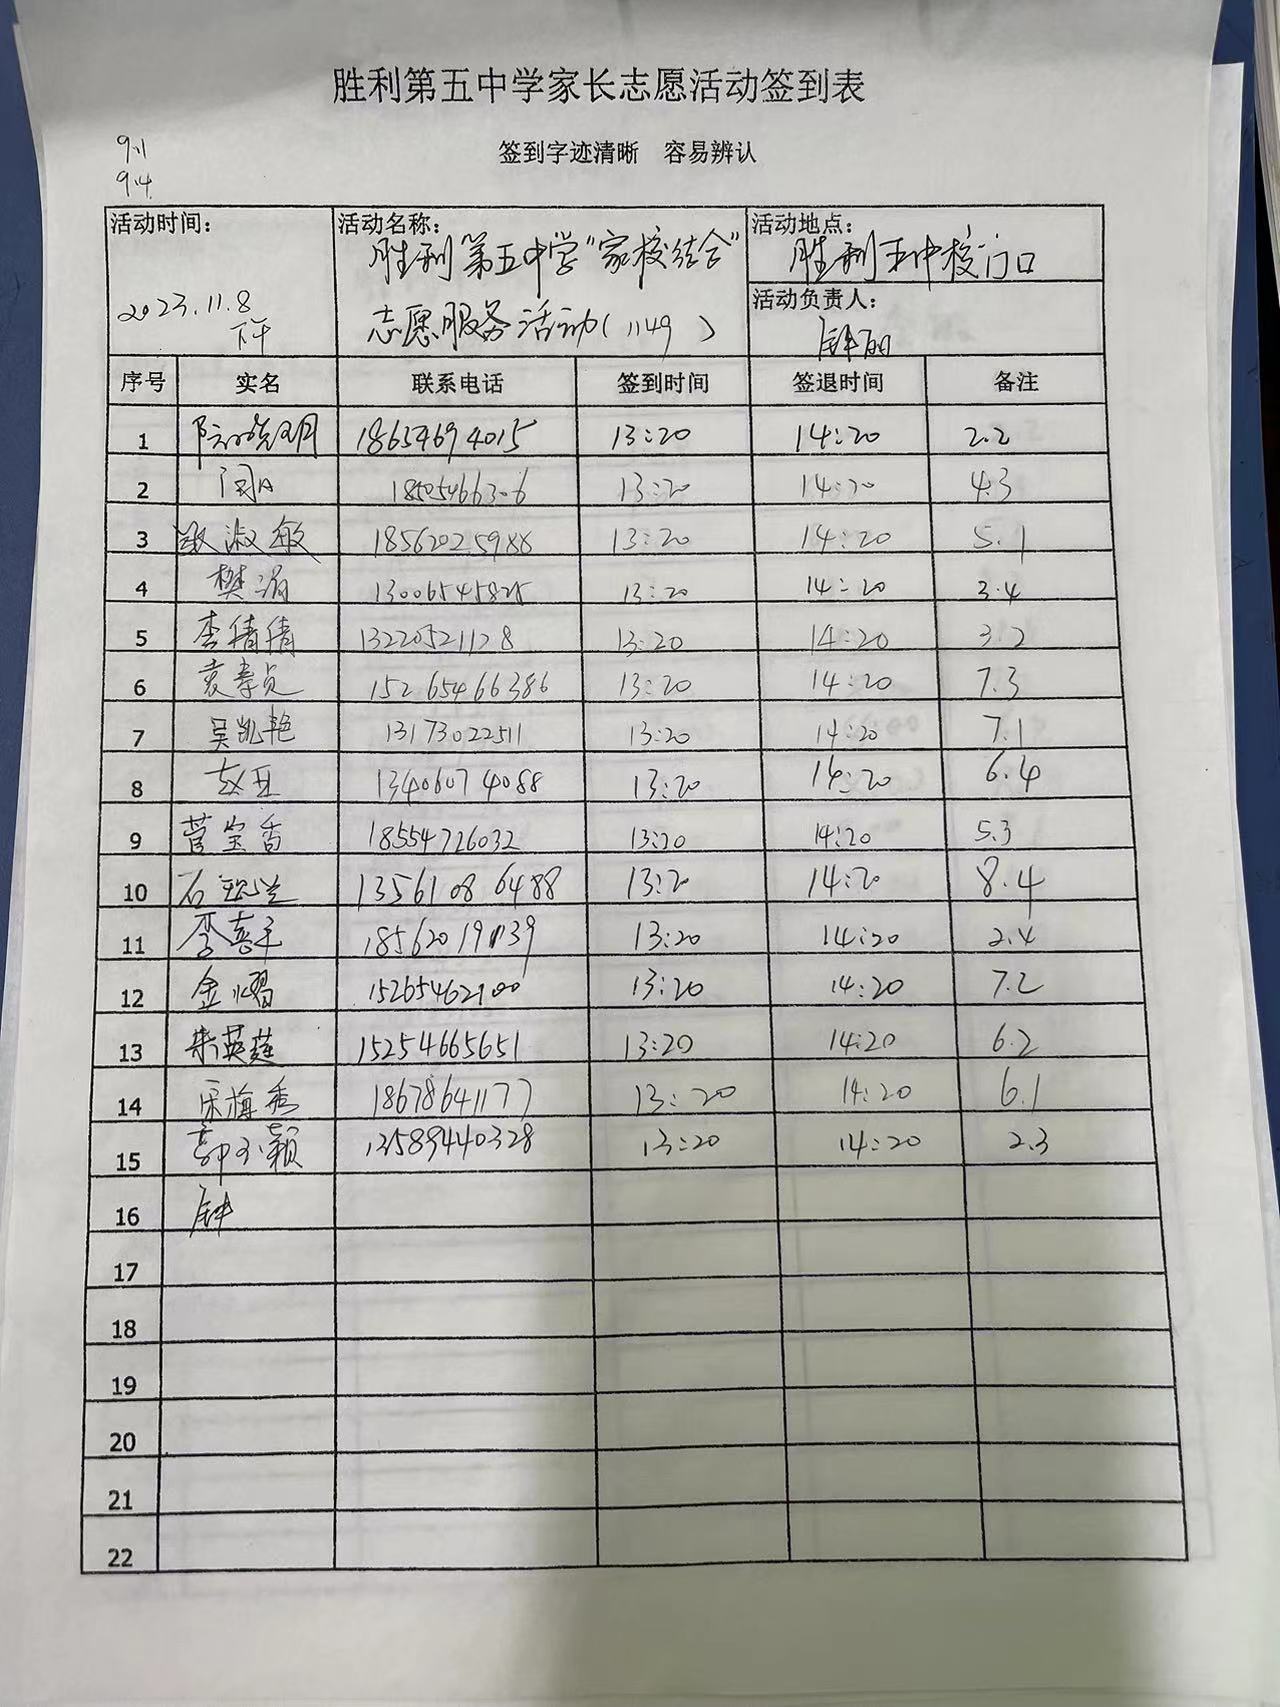 胜利第五中学家长志愿活动签到表
签到字迹清晰 容易辨认
9.1
9.4
活动时间: 2023.11.8 下午
活动名称: 胜利第五中学"家校结合"
志愿服务活动(1149 )
活动地点: 胜利五中校门口
活动负责人: 钟丽
序号 实名 联系电话 签到时间 签退时间 备注
1 18654694015 13:20 14:20 2.2
2 18505466306 13:20 14:20 4.3
3 淑敏 18562025988 13:20 14:20 5.1
4 樊娟 13006545825 13:20 14:20 3.4
5 李倩倩 13220521128 13:20 14:20 3.2
6 袁孝贞 15265466386 13:20 14:20 7.3
7 吴凯艳 13173022511 13:20 14:20 7.1
8 赵亚 13406074088 13:20 14:20 6.4
9 菅宝香 18554726032 13:20 14:20 5.3
10 石 13561086488 13:20 14:20 8.4
11 李喜平 13:20 14:20 2.4
12 金熠 15265462700 13:20 14:20 7.2
13 朱英莲 15254665651 13:20 14:20 6.2
14 宋梅香 18678641177 13:20 14:20 6.1
15 郭小颖 13589440328 13:20 14:20 2.3
16 钟
17
18
19
20
21
22